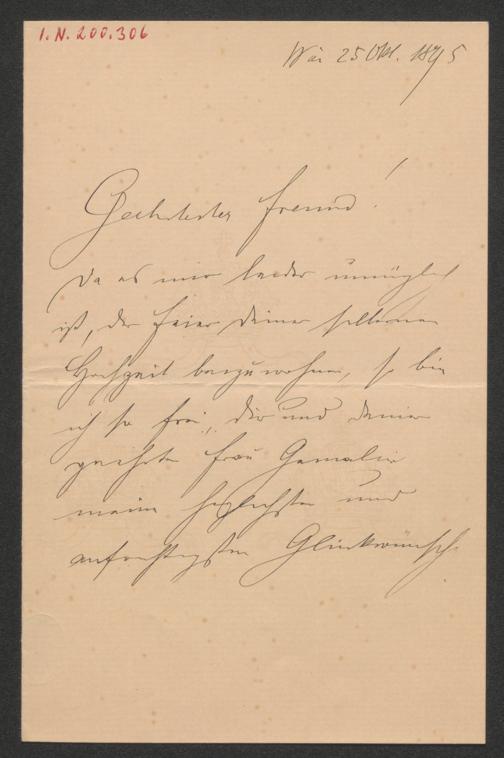 I.N. 200.306
25 Okt. 1895
Geehrtester Freund!
Da es mir leider unmöglich
ist, der Feier Deiner silbernen
Hochzeit beizuwohnen, so bin
ich so frei, Dir und Deiner
geehrten Frau Gemalin
meine herzlichsten und
aufrichtigsten Glückwünsche